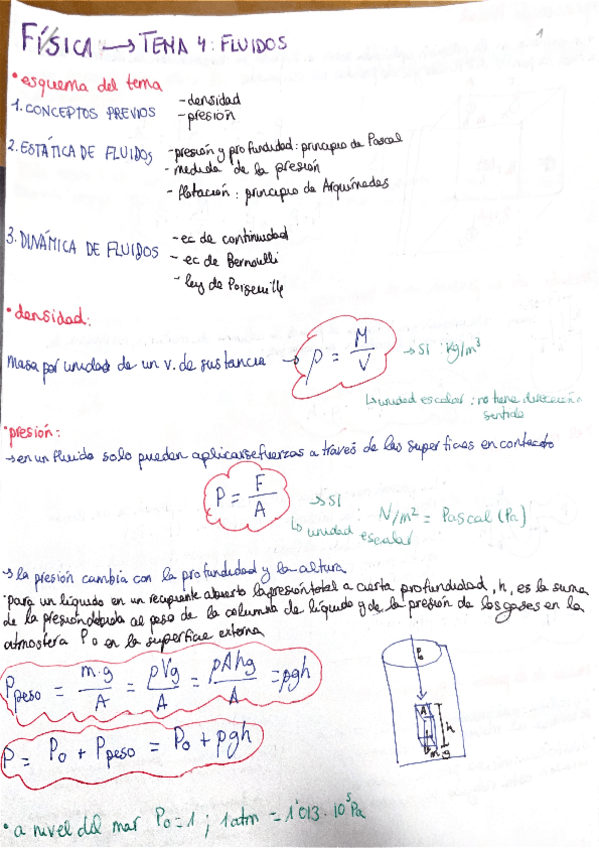 FÍSICA → TEMA 4: FLUIDOS
1
• esquema del tema
1. CONCEPTOS PREVIOS
- densidad
- presión
2. ESTÁTICA DE FLUIDOS
- presión y profundidad: principio de Pascal
- medida de la presión
- flotación: principio de Arquímedes
3. DINÁMICA DE FLUIDOS
- ec de continuidad
- ec de Bernoulli
- ley de Poiseuille
• densidad:
Masa por unidad de un v. de sustancia → ρ = M / V → SI: Kg/m³
↳ unidad escalar: no tiene dirección
sentido
• presión:
→ en un fluido solo pueden aplicarse fuerzas a través de las superficies en contacto
P = F / A → SI N/m² = Pascal (Pa)
↳ unidad
escalar
→ la presión cambia con la profundidad y la altura
• para un líquido en un recipiente abierto la presión total a cierta profundidad, h, es la suma
de la presión debida al peso de la columna de líquido y de la presión de los gases en la
atmósfera P₀ en la superficie externa
P peso = m·g / A = ρVg / A = ρAhg / A = ρgh
P₀
A
h
mg
P = P₀ + P peso = P₀ + ρgh
• a nivel del mar P₀ = 1 ; 1 atm = 1'013 · 10⁵ Pa